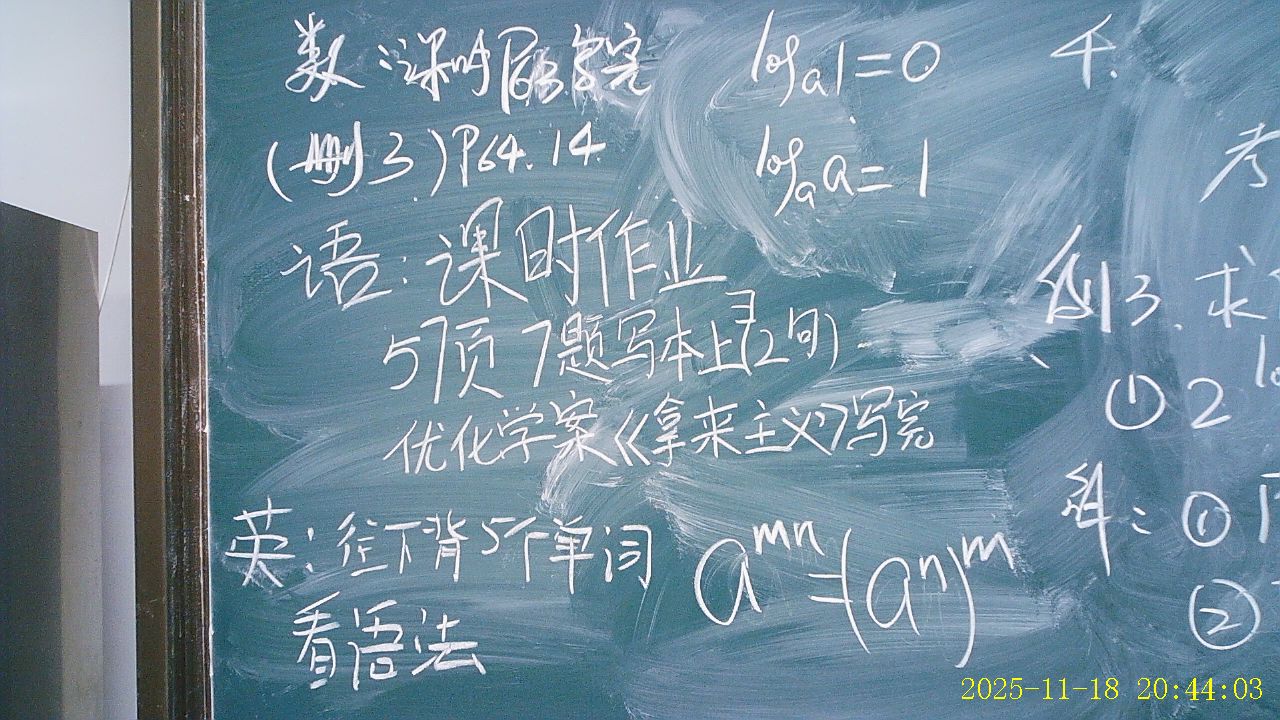 数:课时P63写完
(删3)P64.14.
语:课时作业
57页 7题写本上(2句)
优化学案《拿来主义》写完
英:往下背5个单词
看语法
logₐ1=0
logₐa=1
a^{mn}=(a^n)^m
考
例3.求
① 2
解:①
②
2025-11-18 20:44:03